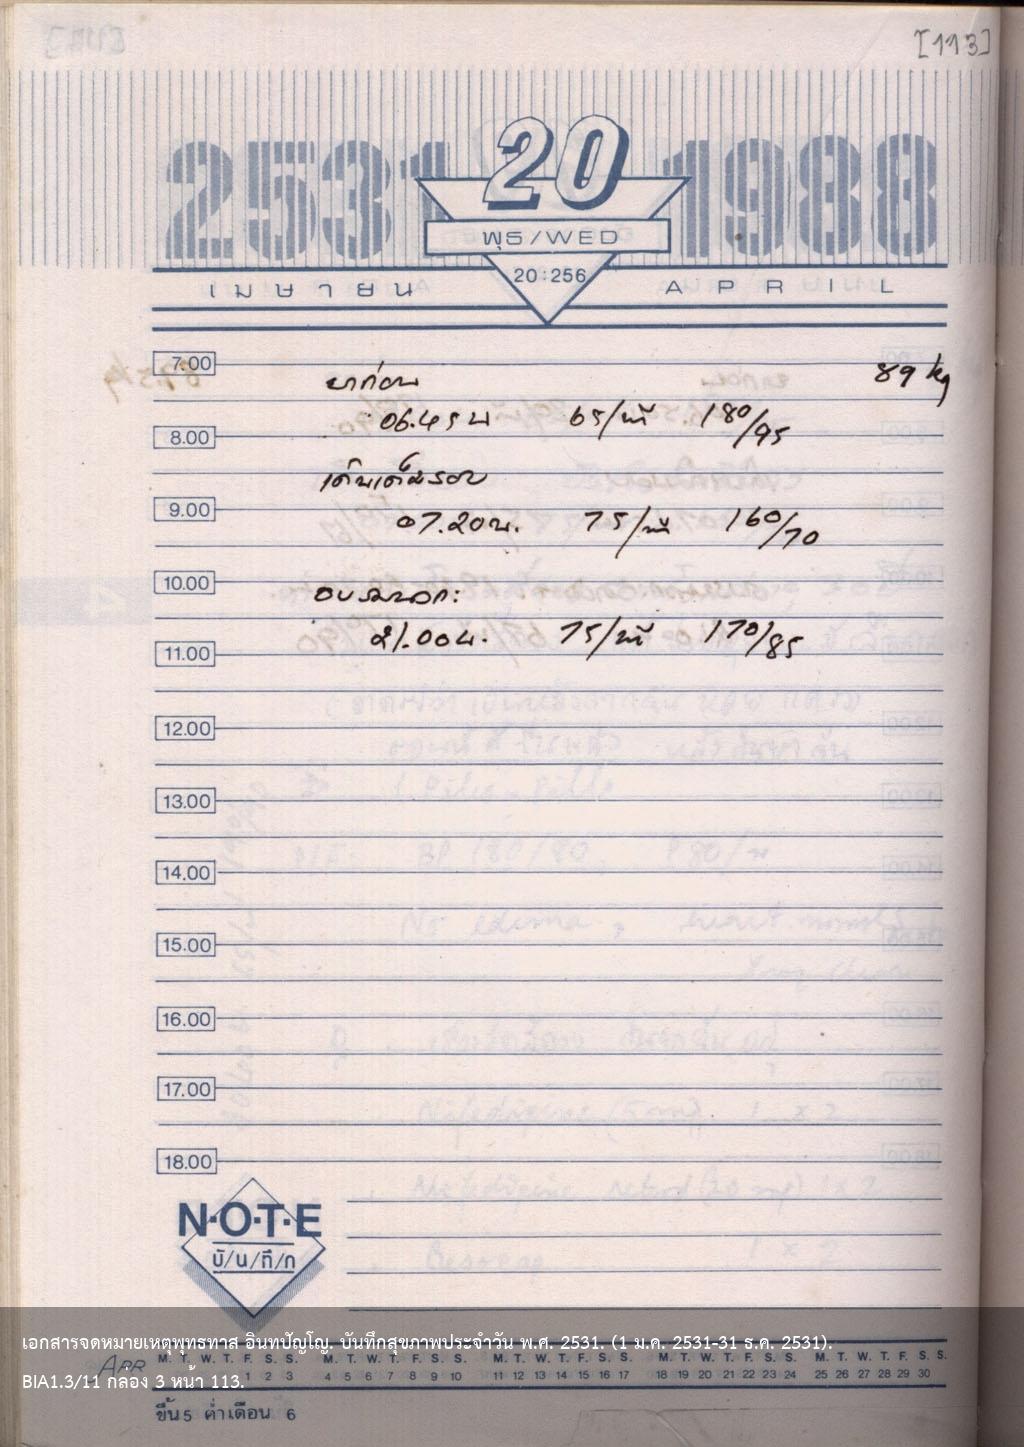 [113]
2531 20 1988
พุธ/WED
20:256
เมษายน APRIL
7.00
89 kg
ยาก่อน
06.45 น 65/นาที 180/95
8.00
07.20น. 75/นาที 160/70
9.00
10.00
21.00น. 75/นาที 170/85
11.00
12.00
13.00
14.00
15.00
16.00
17.00
18.00
N·O·T·E
บั/น/ทึ/ก
เอกสารจดหมายเหตุพุทธทาส อินทปัญโญ. บันทึกสุขภาพประจำวัน พ.ศ. 2531. (1 ม.ค. 2531-31 ธ.ค. 2531).
APR M. T. W. T. F. S. S. M. T. W. T. F. S. S. M. T. W. T. F. S. S. M. T. W. T. F. S. S. M. T. W. T. F. S. S.
1 2 3 4 5 6 7 8 9 10 11 12 13 14 15 16 17 18 19 20 21 22 23 24 25 26 27 28 29 30
BIA1.3/11 กล่อง 3 หน้า 113.
ขึ้น 5 ค่ำ เดือน 6